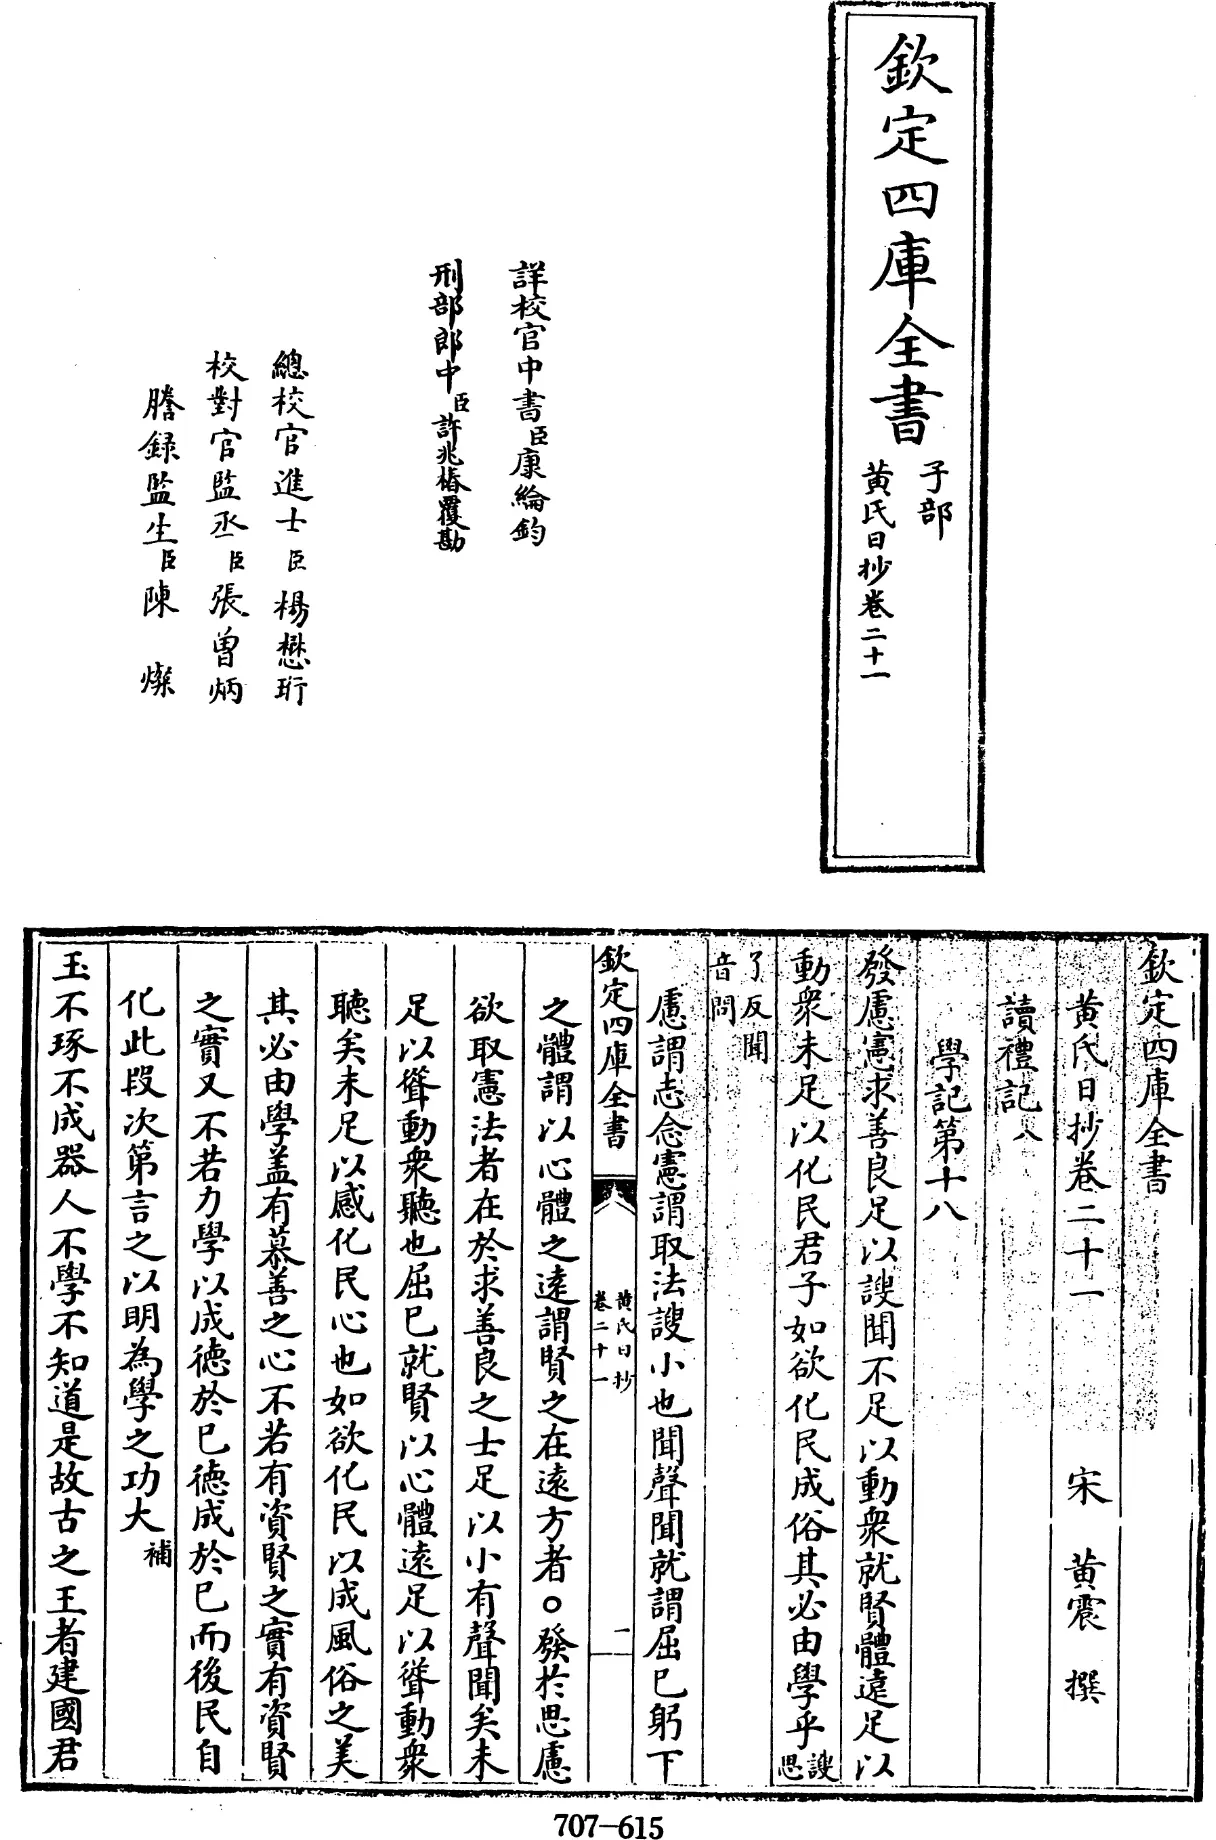 欽定四庫全書
子部
黃氏日抄卷二十一
詳校官中書臣康綸鈞
刑部郎中臣許兆椿覆勘
總校官進士臣楊懋珩
校對官監丞臣張曾炳
謄録監生臣陳燦
欽定四庫全書
黃氏日抄卷二十一
宋 黃震 撰
讀禮記八
學記第十八
發慮憲求善良足以謏聞不足以動衆就賢體遠足以
動衆未足以化民君子如欲化民成俗其必由學乎謏思
了反聞
音問
慮謂志念憲謂取法謏小也聞聲聞就謂屈已躬下
欽定四庫全書
黃氏日抄
卷二十一
一
之體謂以心體之逺謂賢之在逺方者○發於思慮
欲取憲法者在於求善良之士足以小有聲聞矣未
足以聳動衆聽也屈已就賢以心體逺足以聳動衆
聽矣未足以感化民心也如欲化民以成風俗之美
其必由學盖有慕善之心不若有資賢之實有資賢
之實又不若力學以成徳於已徳成於已而後民自
化此段次第言之以明為學之功大補
玉不琢不成器人不學不知道是故古之王者建國君
707-615